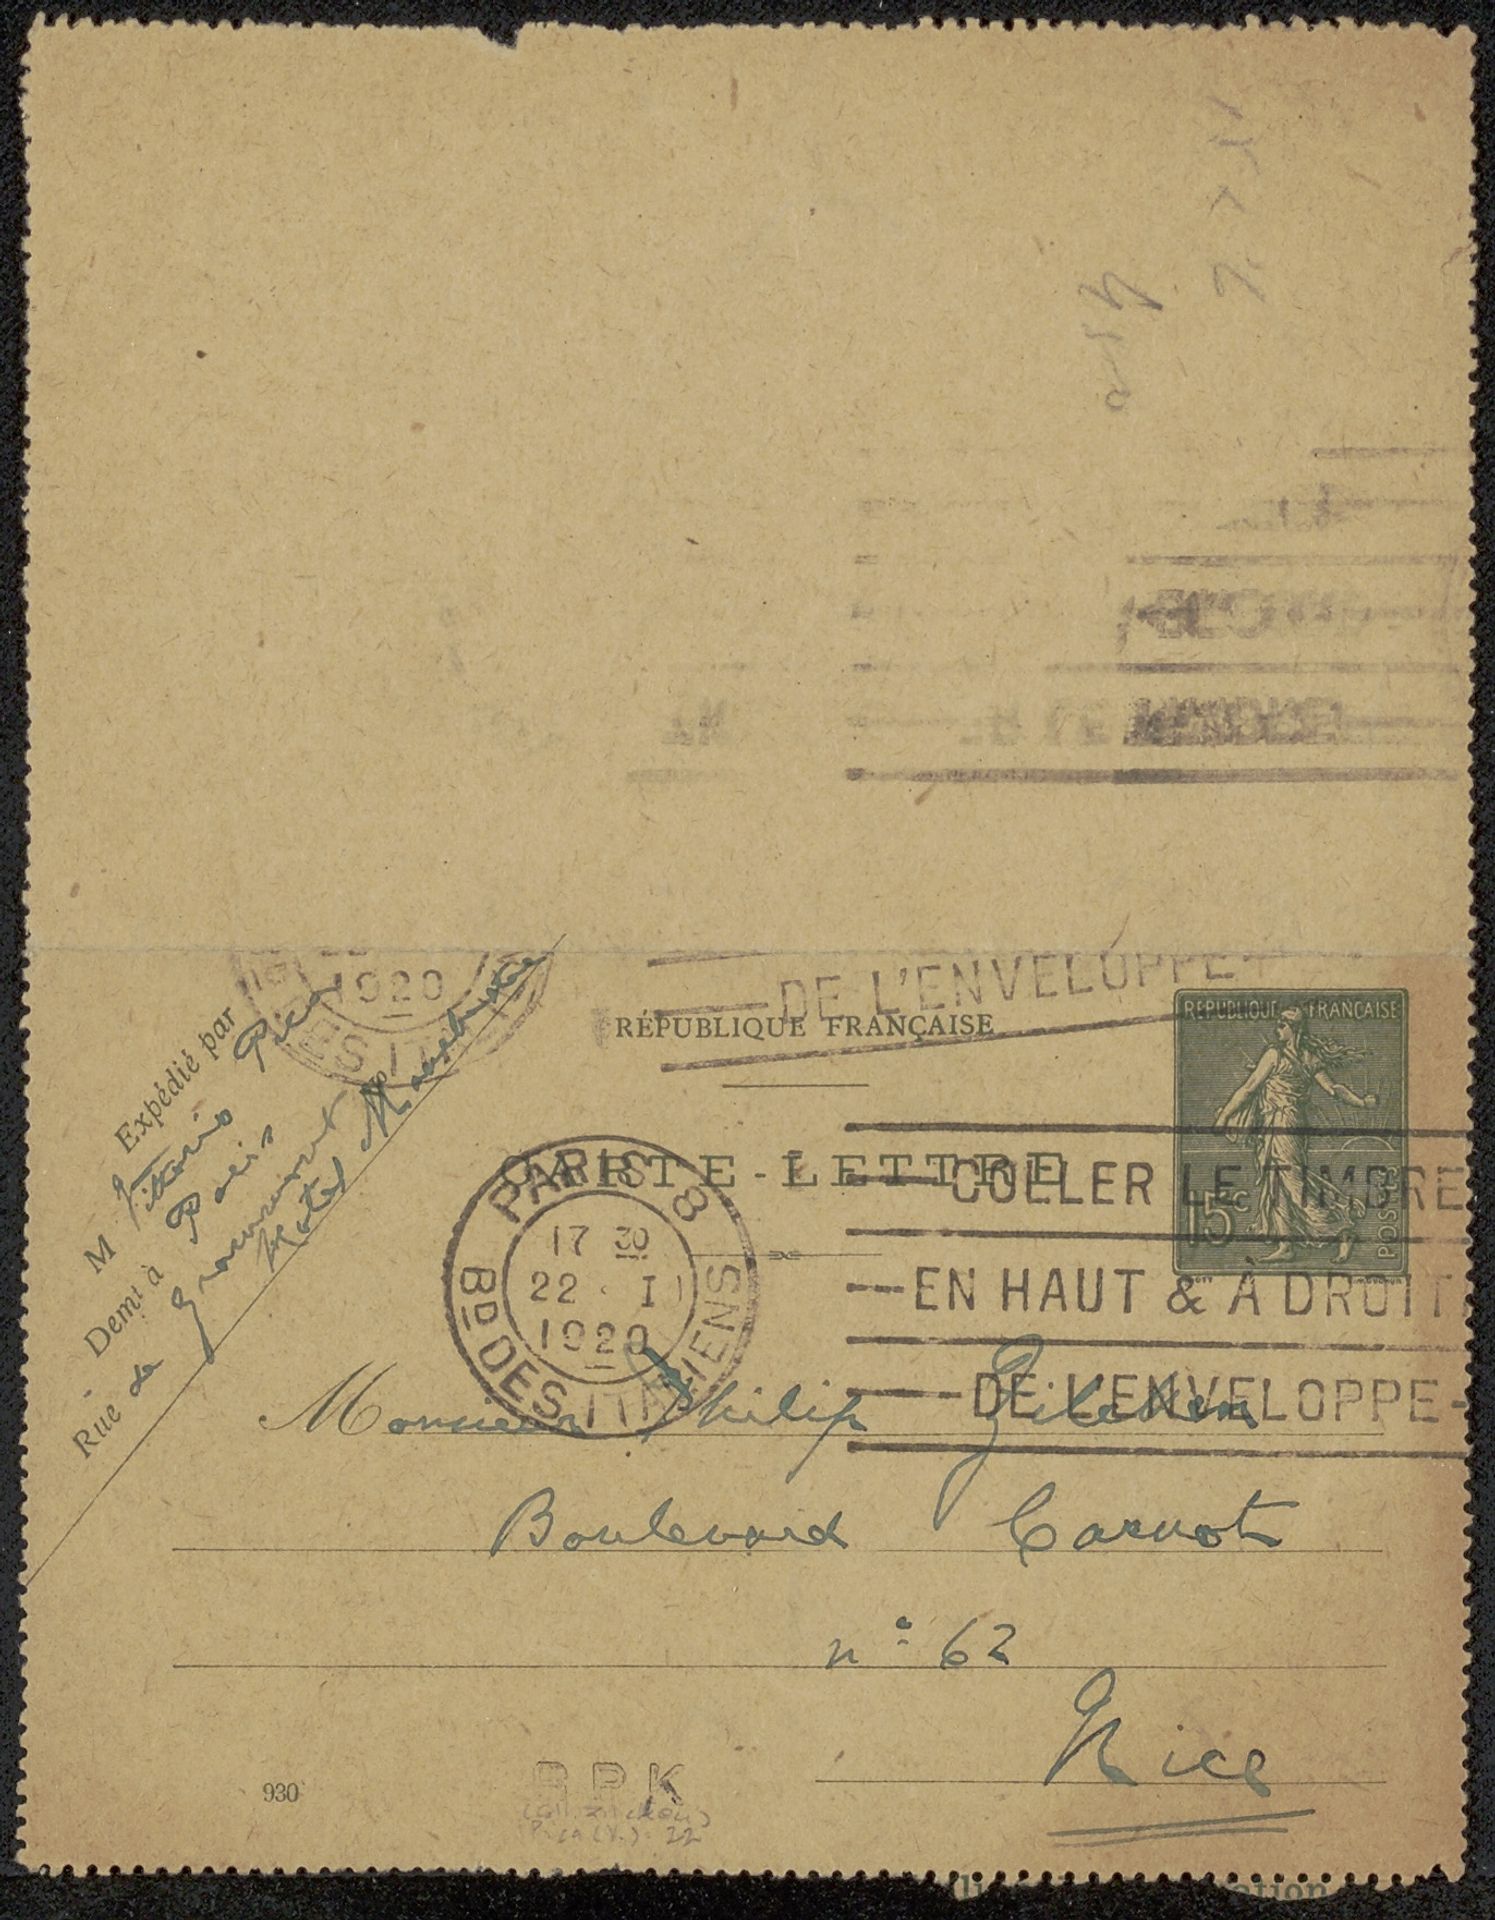 1920
DE L'ENVELOPPE
RÉPUBLIQUE FRANÇAISE
RÉPUBLIQUE FRANÇAISE
15c
POSTES
CARTE-LETTRE
Expédié par
M Vittorio Pica
Demt à Paris
Rue de
Hotel
PARIS 8
17 30
22 · I
1920
BD DES ITALIENS
COLLER LE TIMBRE
EN HAUT & À DROITE
DE L'ENVELOPPE
Monsieur Philip Zilcken
Boulevard Carnot
n° 62
Nice
930
R P K
(coll. Zilcken)
Pica (V.): 22